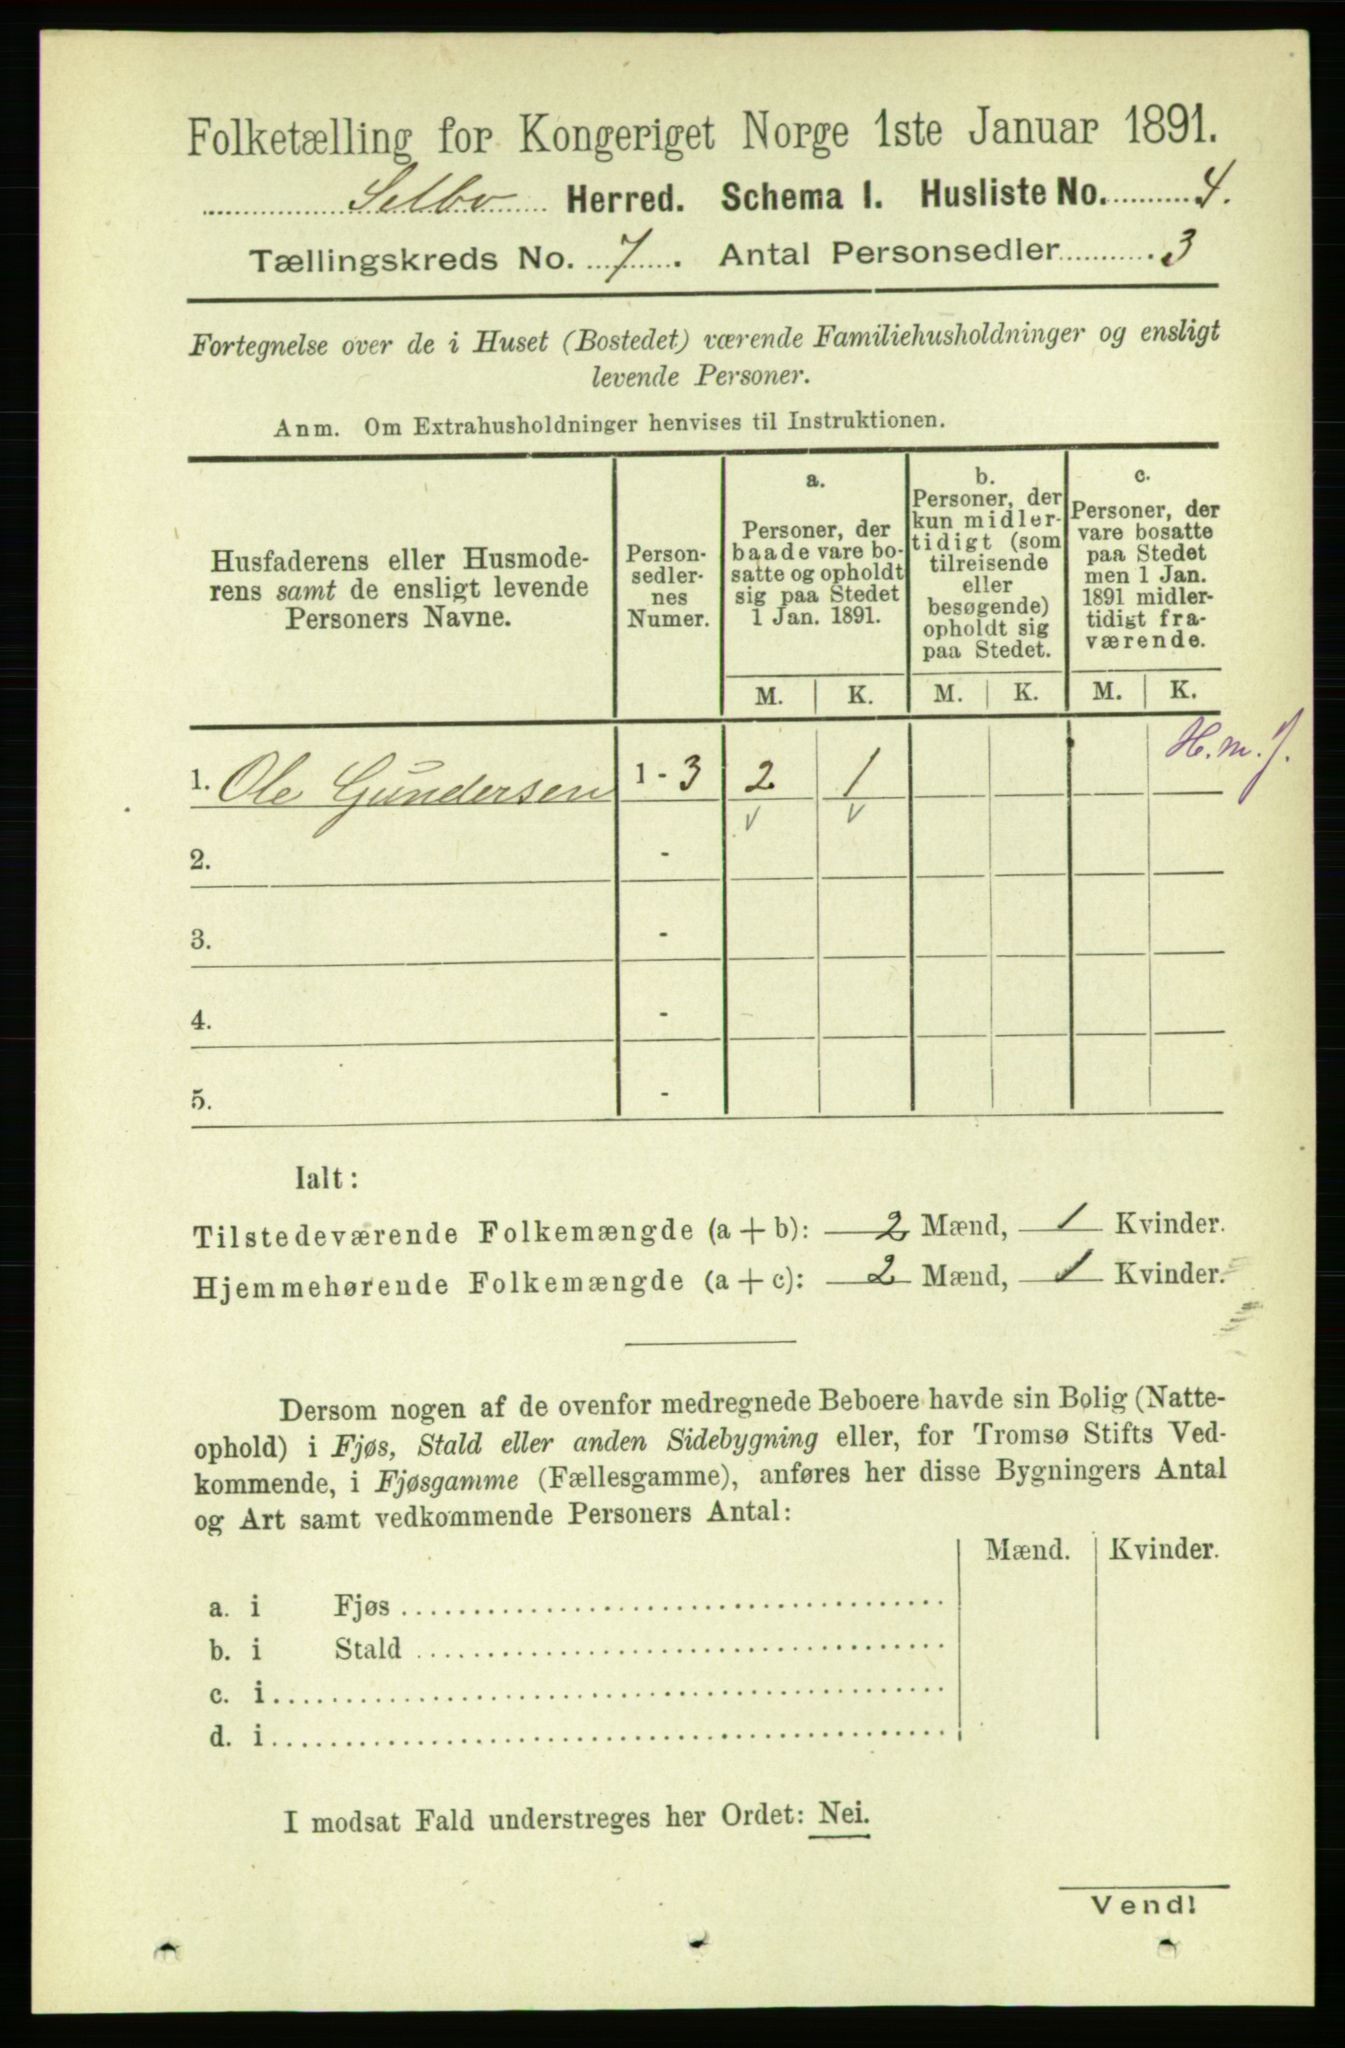 Folketælling for Kongeriget Norge 1ste Januar 1891.
Selbo Herred. Schema I. Husliste No. 4.
Tællingskreds No. 7. Antal Personsedler 3
Fortegnelse over de i Huset (Bostedet) værende Familiehusholdninger og ensligt
levende Personer.
Anm. Om Extrahusholdninger henvises til Instruktionen.
Husfaderens eller Husmode-
rens samt de ensligt levende
Personers Navne.
Person-
sedler-
nes
Numer.
a.
Personer, der
baade vare bo-
satte og opholdt
sig paa Stedet
1 Jan. 1891.
b.
Personer, der
kun midler-
tidigt (som
tilreisende
eller
besøgende)
opholdt sig
paa Stedet.
c.
Personer, der
vare bosatte
paa Stedet
men 1 Jan.
1891 midler-
tidigt fra-
værende.
M. K. M. K. M. K.
H.m.
1. Ole Gundersen 1 - 3 2 1
v v
2. -
3. -
4. -
5. -
Ialt:
Tilstedeværende Folkemængde (a + b): 2 Mænd, 1 Kvinder.
Hjemmehørende Folkemængde (a + c): 2 Mænd, 1 Kvinder.
Dersom nogen af de ovenfor medregnede Beboere havde sin Bolig (Natte-
ophold) i Fjøs, Stald eller anden Sidebygning eller, for Tromsø Stifts Ved-
kommende, i Fjøsgamme (Fællesgamme), anføres her disse Bygningers Antal
og Art samt vedkommende Personers Antal:
Mænd. Kvinder.
a. i Fjøs
b. i Stald
c. i
d. i
I modsat Fald understreges her Ordet: Nei.
Vend!